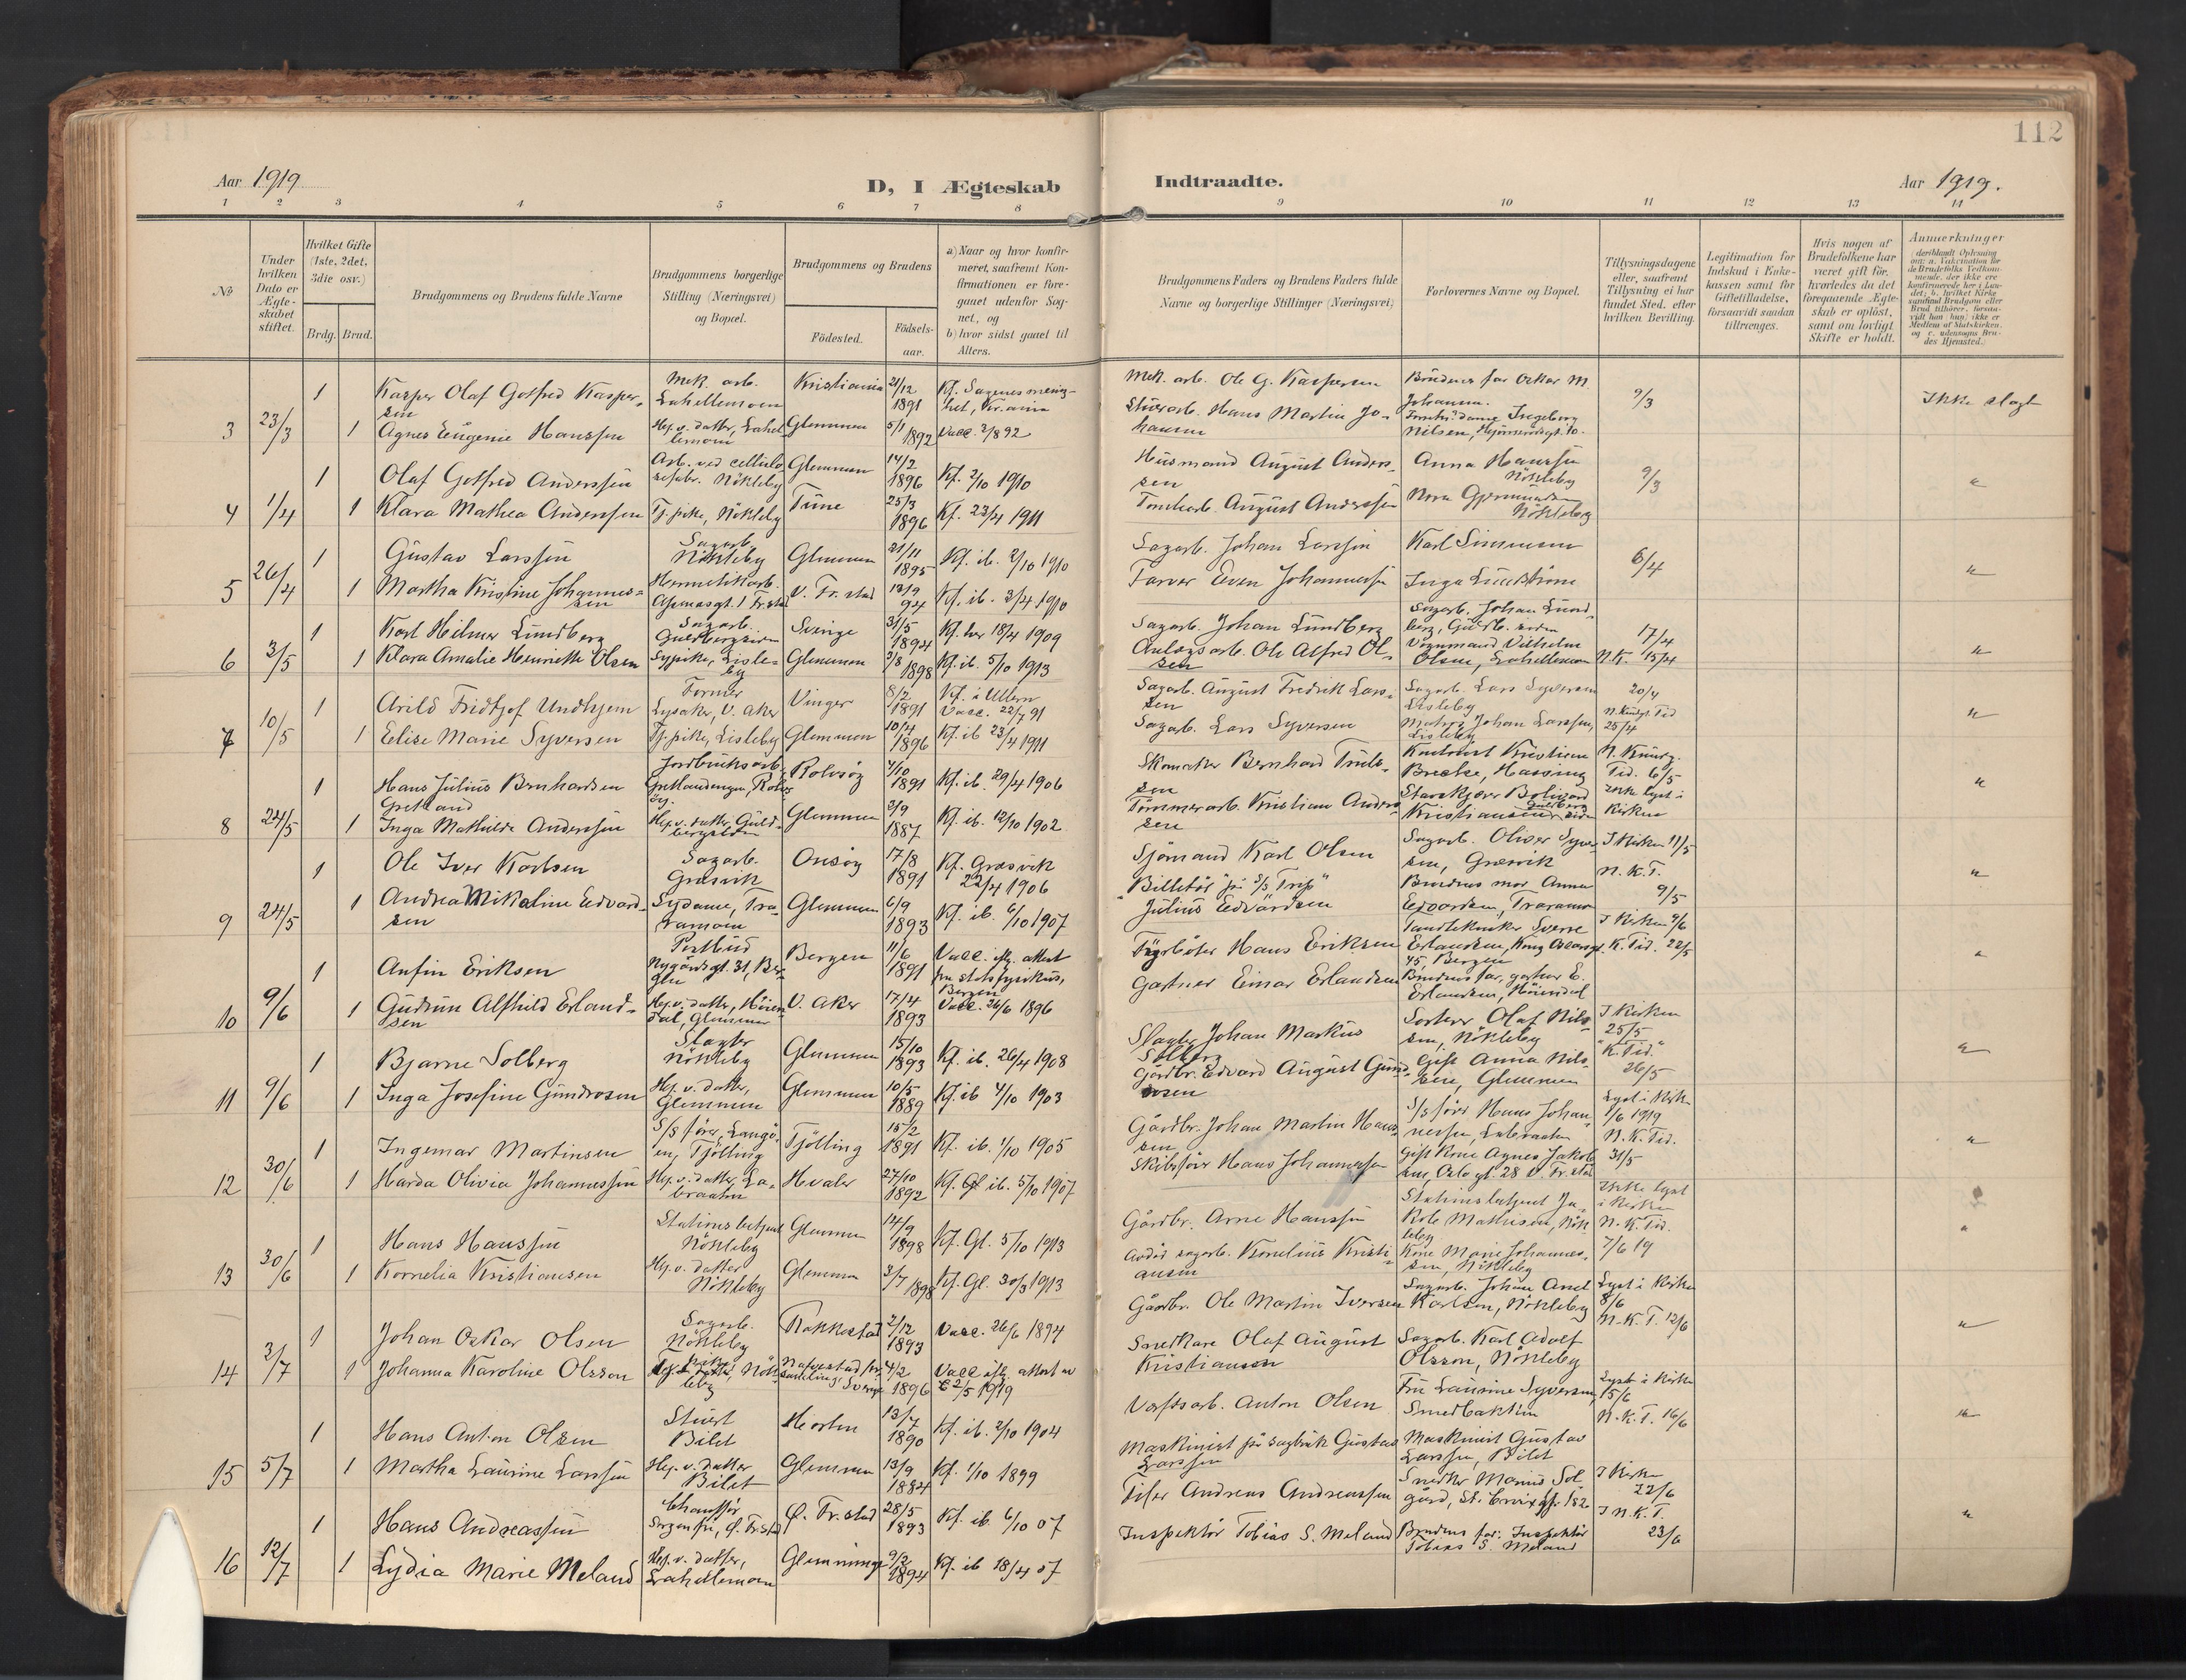 112
Aar 1919
D, I Ægteskab
Indtraadte.
Aar 1919.
1 2 3 4 5 6 7 8 9 10 11 12 13 14
No
Under hvilken Dato er Ægteskabet stiftet.
Hvilket Gifte (1ste, 2det, 3die osv.)
Brdg. Brud.
Brudgommens og Brudens fulde Navne
Brudgommens borgerlige Stilling (Næringsvei) og Bopæl.
Brudgommens og Brudens
Födested.
Födselsaar.
a) Naar og hvor konfirmeret, saafremt Konfirmationen er foregaaet udenfor Sognet, og
b) hvor sidst gaaet til Alters.
Brudgommens Faders og Brudens Faders fulde Navne og borgerlige Stillinger (Næringsvei)
Forlovernes Navne og Bopæl.
Tillysningsdagene eller, saafremt Tillysning ei har fundet Sted, efter hvilken Bevilling.
Legitimation for Indskud i Enkekassen samt for Giftetilladelse, forsaavidt saadan tiltrænges.
Hvis nogen af Brudefolkene har været gift før, hvorledes da det foregaaende Ægteskab er oplöst, samt om lovligt Skifte er holdt.
Anmerkninger
3 23/3
1 Kasper Olaf Gotfred Kaspersen
Mek. arb. Lahellemoen
Kristiania 21/12 1891
Kf. Sagenes menighet, Kr.ania
Mek. arb. Ole G. Kaspersen
Brudens far Oskar M. Johannsen.
9/3
Ikke slægt
1 Agnes Eugenie Hanssen
Hj. v. datter, Lahellemoen
Glemmen 5/1 1892
Vacc. 2/8 92
Stuerarb. Hans Martin Johansen
Ingeborg Nilsen
4 1/4
1 Olaf Gotfred Anderssen
Arb. ved cellulosefabr. Nökleby
Glemmen 14/2 1896
Kf. 2/10 1910
Husmand August Anderssen
Anna Hanssen Nökleby
9/3
"
1 Klara Mathea Anderssen
Tj. pike, Nökleby
Tune 25/3 1896
Kf. 23/4 1911
Tomtearb. August Anderssen
Nora Gjermundsen Nökleby
5 26/4
1 Gustav Larssen
Sagarb. Nökleby
Glemmen 21/11 1895
Kf. ib. 2/10 1910
Sagarb. Johan Larssen
Karl Simensen
6/4
"
1 Martha Kristine Johannessen
Hermetikarb. Apenesgt. 1 Fr.stad
V. Fr. stad 13/9 94
Kf. ib. 3/4 1910
Farver Even Johannessen
Inga Lundström
6 3/5
1 Karl Hilmer Lundberg
Sagarb. Guldbergsiden
Sverige 31/5 1894
Kf. her 18/4 1909
Sagarb. Johan Lundberg
Sagarb. Johan Lundberg, Guldb. siden
17/4
"
1 Klara Amalie Henriette Olsen
Sypike, Lisleby
Glemmen 3/8 1898
Kf. ib. 5/10 1913
Anlægsarb. Ole Alfred Olsen
Vognmand Vilhelm Olsen, Lahellemoen
N. K. 15/4
7 10/5
1 Arild Fridtjof Undhjem
Former Lysaker, V. Aker
Vinger 8/2 1891
Kf. i Ullern Vacc. 22/7 91
Sagarb. August Fredrik Larssen
Sagarb. Lars Syversen Lisleby
20/4
"
1 Eelise Marie Syversen
Tj. pike, Lisleby
Glemmen 10/4 1896
Kf. ib 23/4 1911
Sagarb. Lars Syversen
Johan Larssen, Lisleby
N. Kundgj. Tid 25/4
8 24/5
1 Hans Julius Bernhardsen Gretland
Jordbruksarb. Gretlandengen, Rolvsøy.
Rolvsøy 4/10 1891
Kf. ib. 29/4 1906
Skomaker Bernhard Trulssen
Kristian Brecke, Hassing
N. Kundg. Tid. 6/5
"
1 Inga Mathilde Anderssen
Hj. v. datter, Guldbergsiden
Glemmen 3/9 1887
Kf. ib. 12/10 1902
Tömmerarb. Kristian Anderssen
Kristiansen Guldbergsiden
Ikke lyst i Kirken
9 24/5
1 Ole Iver Karlsen
Sagarb. Græsvik
Onsøy 17/8 1891
Kf. Græsvik 22/4 1906
Sjömand Karl Olsen
Sagarb. Oliver Syversen, Græsvik
I Kirken 11/5
"
1 Andrea Mikaline Edvardsen
Sydame, Traramoen
Glemmen 6/9 1893
Kf. ib. 6/10 1907
Billetör på S/S "Trip" Julius Edvardsen
Brudens mor Anna Edvardsen, Traramoen
N. K. T. 9/5
10 9/6
1 Anfin Eriksen
Postbud Nygårdsgt. 31, Bergen
Bergen 11/6 1891
Vacc. iflg. attest fra statsfysikus, Bergen
Fyrböter Hans Eriksen
Tandtekniker Sverre Erlandsen, Bergen
I Kirken 9/6
"
1 Gudrun Alfhild Erlandsen
Hj. v. datter, Glemmen
V. Aker 17/4 1893
Vacc. 26/6 1896
Gartner Einar Erlandsen
Brudens far, gartner E. Erlandsen
K. Tid. 22/5
11 9/6
1 Bjarne Solberg
Slagter Nökleby
Glemmen 15/10 1893
Kf. ib. 26/4 1908
Slagter Johan Markus Solberg
Sorterer Olaf Nilssen, Nökleby
I Kirken 25/5
"
1 Inga Josefine Gundrosen
Hj. v. datter, Glemmen
Glemmen 10/5 1889
Kf. ib 4/10 1903
Gårdbr. Edvard August Gundrosen
Gift Anna Nilssen, Glemmen
"K. Tid." 26/5
12 30/6
1 Ingemar Martinsen
S/s fører, Langöen, Tjölling
Tjölling 15/2 1891
Kf. ib. 1/10 1905
Gårdbr. Johan Martin Hanssen
S/s förer Hans Johannessen, Labraaten
Lyst i Kirk. 1/6 1919
"
1 Harda Olivia Johannessen
Hj. v. datter, Labraaten
Hvaler 27/10 1892
Kf. Gl ib. 5/10 1907
Skibsförer Hans Johannessen
Gift Kone Agnes Jakobsen, Oslo gt. 28 V. Fr. stad
N. K. Tid. 31/5
13 30/6
1 Hans Hanssen
Stationsbetjent Nökleby
Glemmen 14/9 1898
Kf. Gl. 5/10 1913
Gårdbr. Arne Hanssen
Stationsbetjent Jakob Mathisen, Nökleby
Ikke lyst i Kirken
"
1 Kornelia Kristiansen
Hj. v. datter Nökleby
Glemmen 3/7 1898
Kf. Gl. 30/3 1913
Avdöd sagarb. Kornelius Kristiansen
Kone Marie Johannessen, Nökleby
N. K. Tid. 7/6 19
14 3/7
1 Johan Oskar Olsen
Sagarb. Nökleby
Rakkestad 2/12 1893
Vacc. 26/6 1894
Gårdbr. Ole Martin Iversen
Sagarb. Johan Karlsen, Nökleby
Lyst i Kirken 8/6
"
1 Johanna Karoline Olsson
Nökleby
Sverige 4/2 1896
Vacc iflg. attest av 2/5 1919
Snedkare Olaf August Kristiansson
Sagarb. Karl Adolf Olsson, Nökleby
N. K. T. 12/6
15 5/7
1 Hans Anton Olsen
Stuert Bilet
Horten 13/7 1890
Kf. ib. 2/10 1904
Værftsarb. Anton Olsen
Fru Laurine Syversen, Smedbakken
Lyst i Kirken 15/6
"
1 Martha Laurine Larssen
Hj. v. datter Bilet
Glemmen 13/9 1884
Kf. 1/10 1899
Maskinist på sagbruk Gustav Larssen
Maskinist Gustav Larssen, Bilet
N. K. T. 16/6
16 12/7
1 Hans Andreassen
Chauffør Sorgenfri, Ø. Fr.stad
Ø. Fr. stad 28/5 1893
Kf. ib. 6/10 07
Fisker Andreas Andreassen
Snedker Marius Solgård, St. Croixgt. 182
I Kirken 22/6
"
1 Lydia Marie Meland
Hj. v. datter, Lahellemoen
Glemminge 9/2 1894
Kf. ib 18/4 07
Inspektör Tobias S. Meland
Brudens far: Inspektör Tobias S. Meland
I N. K. T. 23/6